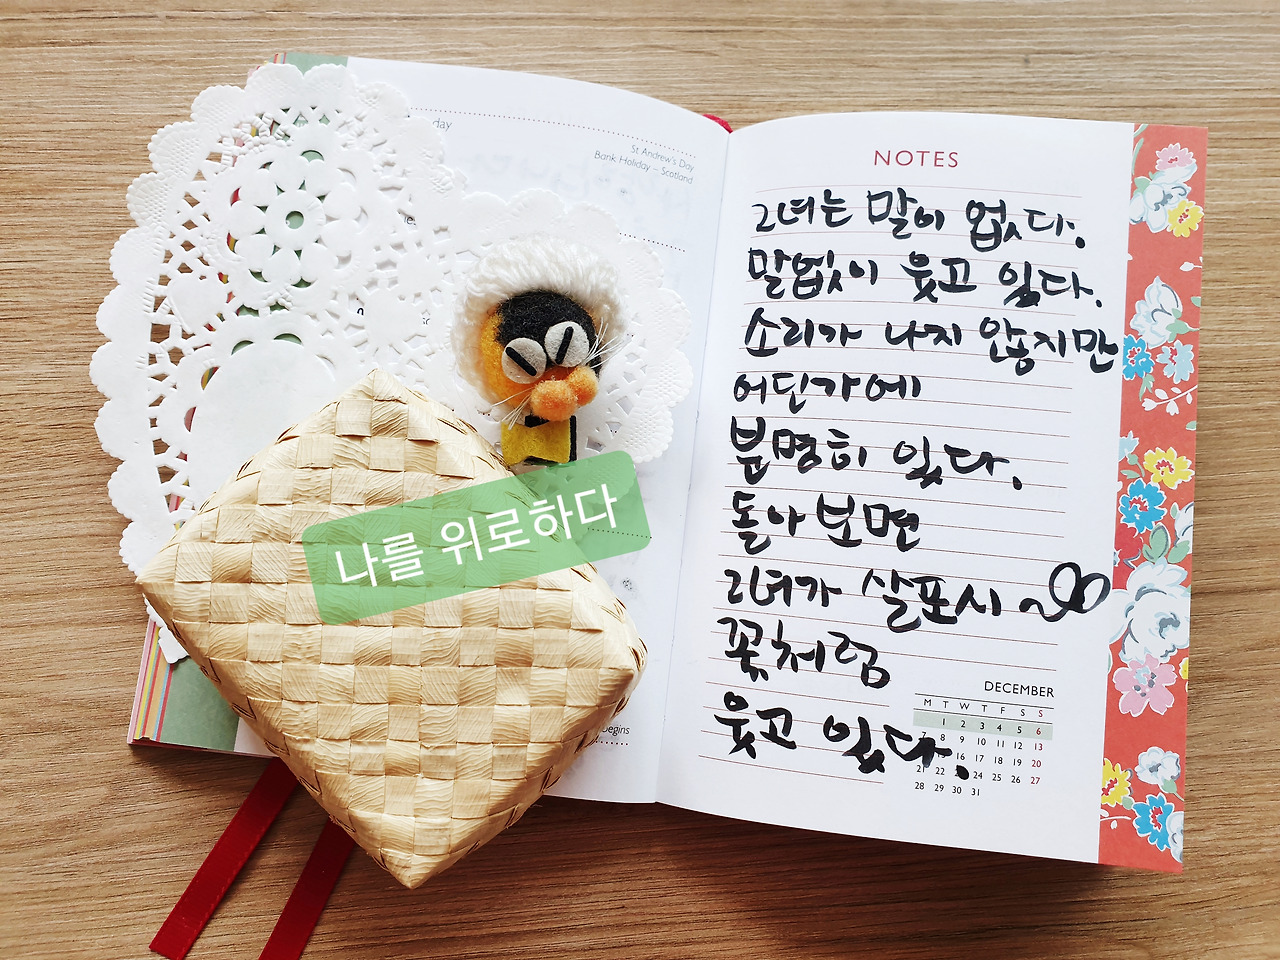 day
St Andrew's Day
Bank Holiday – Scotland
나를 위로하다
Begins
NOTES
그녀는 말이 없다.
말없이 웃고 있다.
소리가 나지 않지만
어딘가에
분명히 있다.
돌아보면
그녀가 살포시~
꽃처럼
웃고 있다.
DECEMBER
M T W T F S S
1 2 3 4 5 6
7 8 9 10 11 12 13
16 17 18 19 20
21 22 24 25 26 27
28 29 30 31